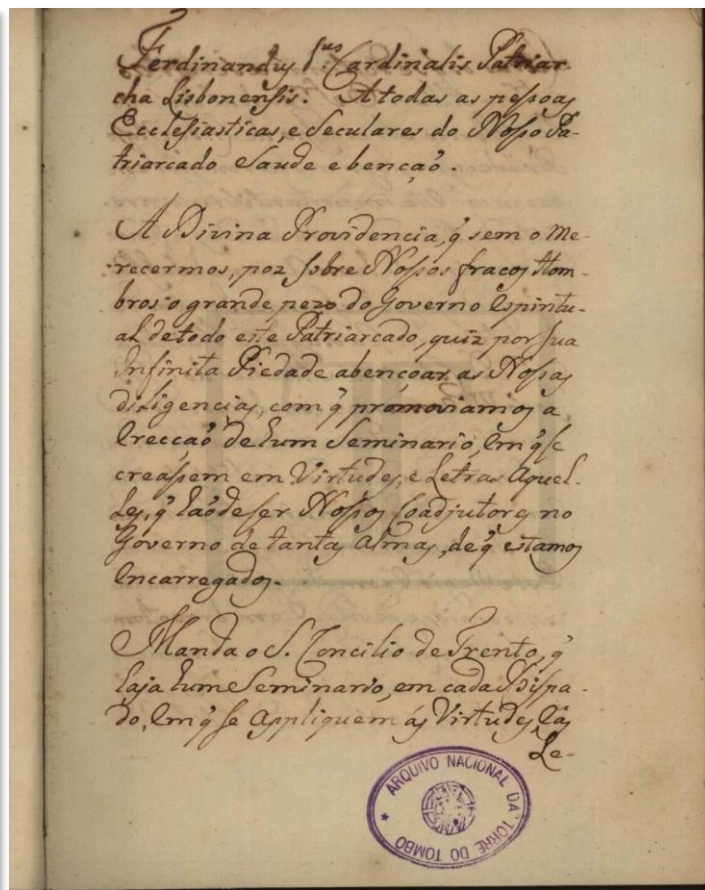 Ferdinandus Sus. Cardinalis Patriar
cha Lisbonensis. A todas as pessoas
Ecclesiasticas, e Seculares do Nosso Pa-
triarcado Saude e bençaõ.
A Divina Providencia, q̃ sem o me-
recermos, poz sobre Nossos fracos Hom-
bros o grande pezo do Governo Espiritu-
al de todo este Patriarcado, quiz por sua
Infinita Piedade abençoar as Nossas
diligencias, com q̃ promoviamos a
Erecçaõ de hum Seminario, em q̃ se
creassem em Virtudes, e Letras Aquel-
les, q̃ haõ de ser Nossos Coadjutores no
Governo de tantas Almas, de q̃ estamos
Encarregados.
Manda o S. Concilio de Trento, q̃
haja hum Seminario, em cada Bispa-
do, Em q̃ se Appliquem ás Virtudes, Eás
Le-
ARQUIVO NACIONAL DA TORRE DO TOMBO